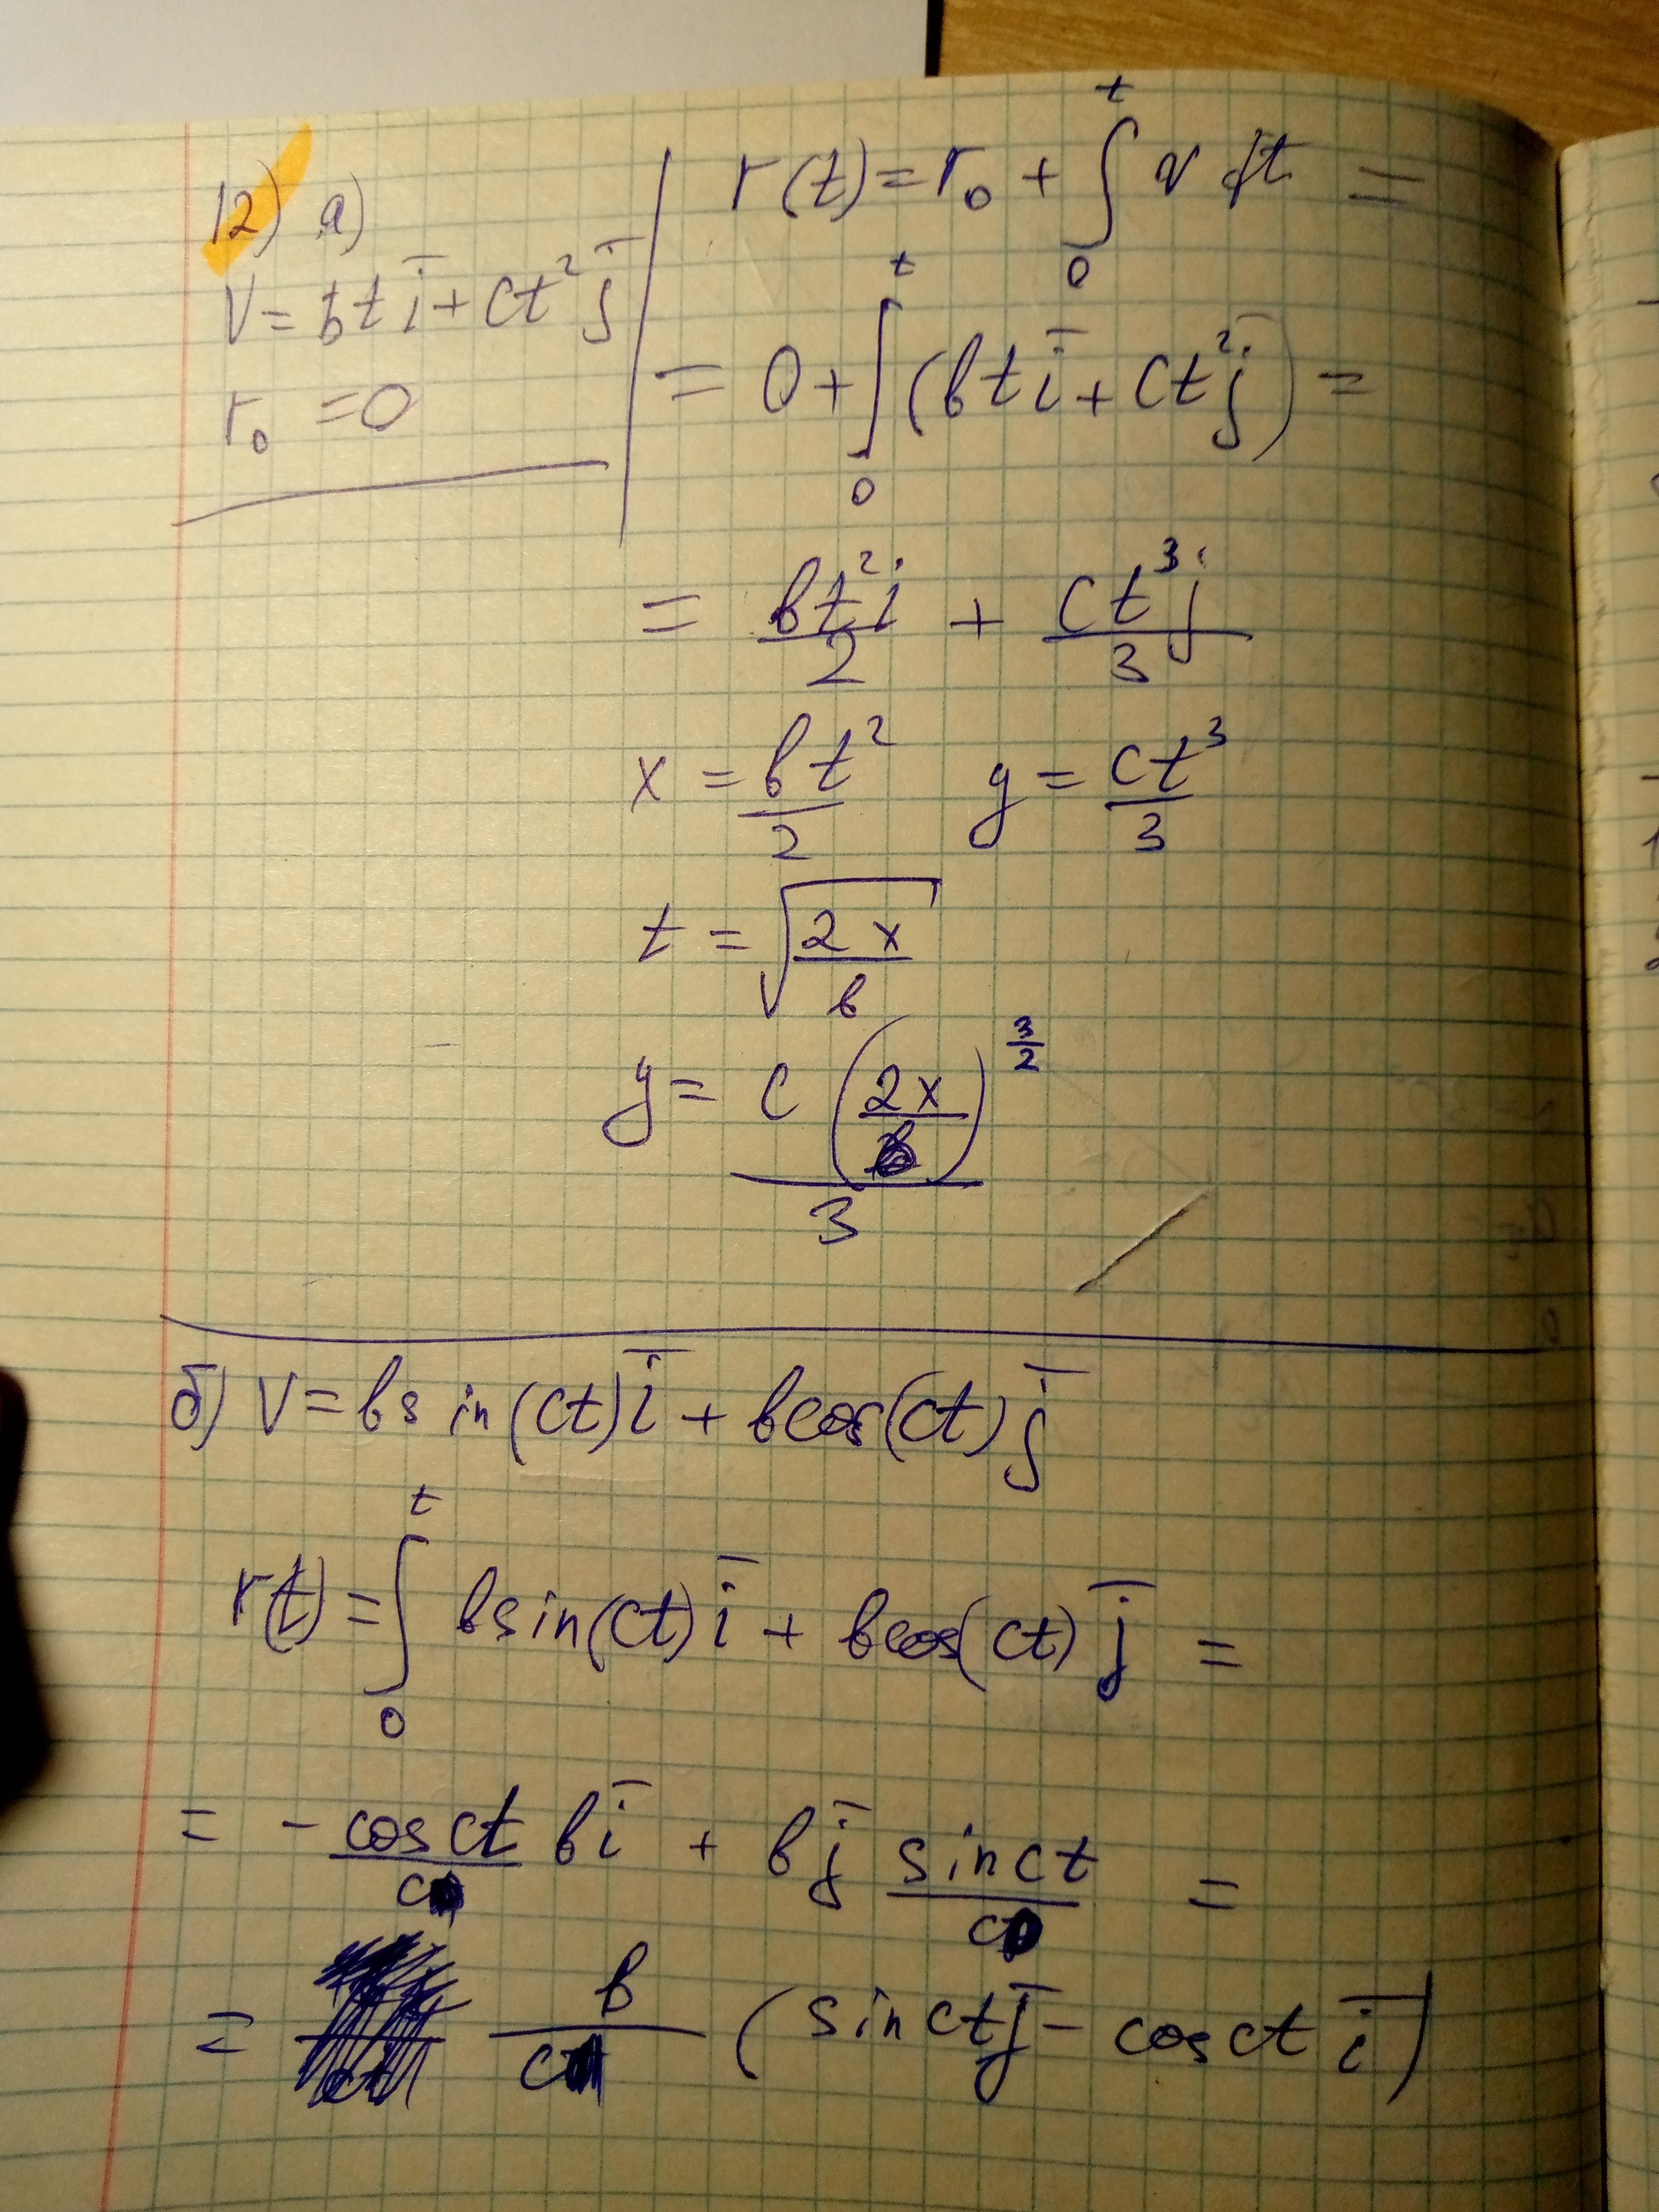 12) а)
V = bt i̅ + ct² j̅
r₀ = 0
r(t) = r₀ + ∫₀ᵗ v dt =
= 0 + ∫₀ᵗ (bt i̅ + ct² j̅) =
= bt² i / 2 + ct³ j / 3
x = bt² / 2 y = ct³ / 3
t = √(2x / b)
y = c (2x / b)^(3/2) / 3
б) V = b sin(ct) i̅ + b cos(ct) j̅
r(t) = ∫₀ᵗ b sin(ct) i̅ + b cos(ct) j̅ =
= - cos ct / c b i̅ + b j̅ sin ct / c =
= b / c (sin ct j̅ - cos ct i̅)